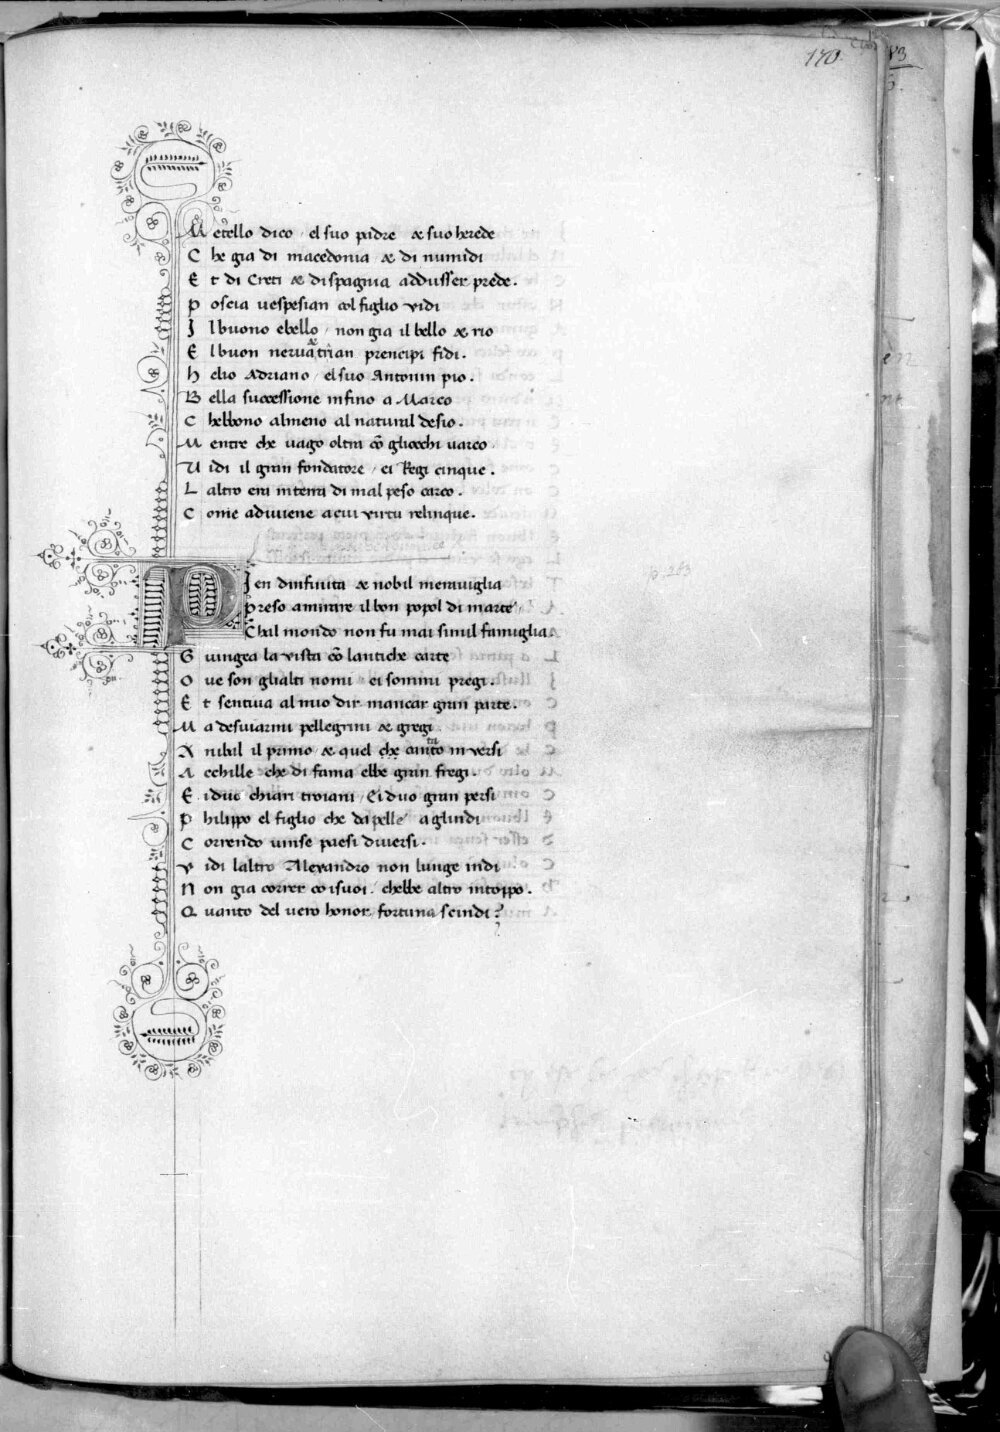 170
M etello dico / el suo padre & suo herede
C he gia di macedonia & di numidi
E t di Creti & dispagnia addusser prede.
P oscia uespesian col figlio vidi
I l buono e bello / non gia il bello & rio
E l buon nerua & traian prencipi fidi.
h elio Adriano / el suo Antonin pio.
B ella successione infino a Marco
C hebbono almeno al natural desio.
M entre che uago oltra cō gliocchi uarco
U idi il gran fondatore / ei Regi cinque.
L altro era in terra di mal peso carco.
C ome aduiuene a cui virtu relinque.
P Ien dinfinita & nobil merauiglia
Preso a mirare il bon popol di marte
Chal mondo non fu mai simil famiglia
G iungea la vista cō lantiche carte
O ue son glialti nomi / ei sommi pregi.
E t sentiua al mio dir mancar gran parte.
M a desuiarmi pellegrini & gregi
A nibal il primo & quel che cantato in versi
A cchille che di fama ebbe gran fregi.
E i duo chiari troiani / Ei duo gran persi
P hilippo el figlio che da pelle a glindi
C orrendo uinse paesi diuersi.
V idi laltro Alexandro non lunge indi
N on gia correr co i suoi. chebbe altro intoppo.
Q uanto del uero honor fortuna scindi?